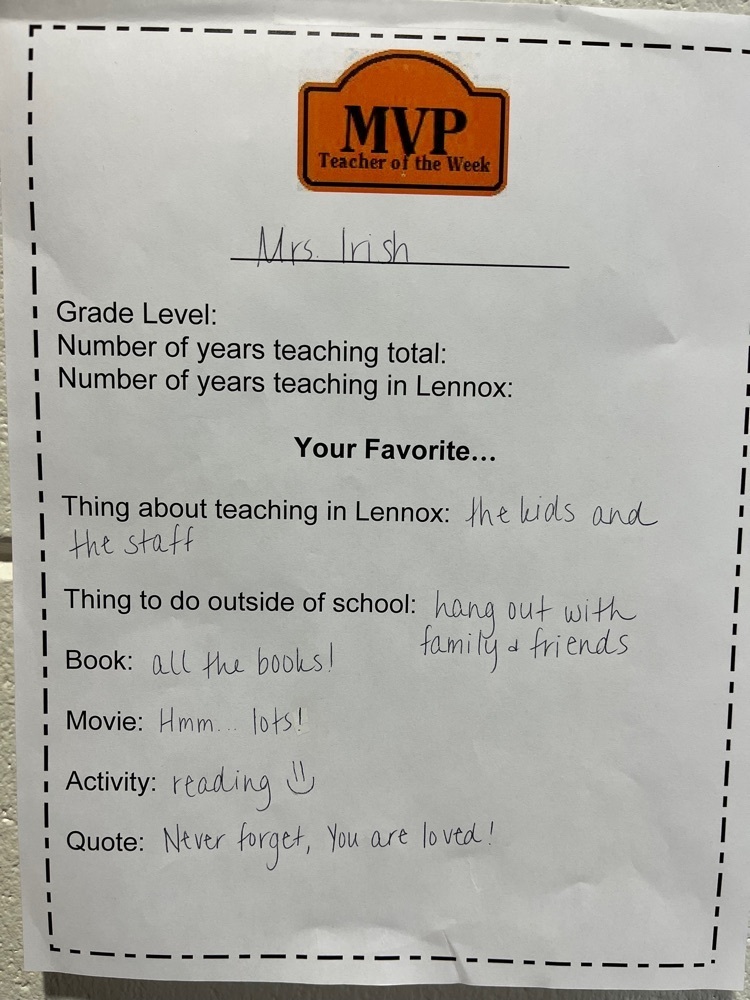 MVP
Teacher of the Week
Mrs. Irish
Grade Level:
Number of years teaching total:
Number of years teaching in Lennox:
Your Favorite...
Thing about teaching in Lennox: the kids and
the staff
Thing to do outside of school: hang out with
family & friends
Book: all the books!
Movie: Hmm... lots!
Activity: reading
Quote: Never forget, You are loved!